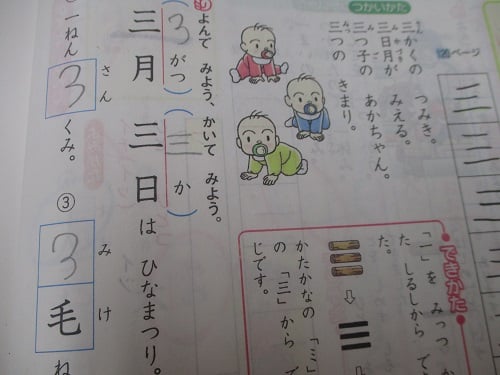 つかいかた
ページ
三かくの つみき。
三日月が みえる。
三つ子の あかちゃん。
三つの きまり。
三
三
三
できかた
「一」を みっつ か
た しるしから で
た。
かたかなの 「ミ」
の 「三」から で
じです。
よんで みよう、かいて みよう。
(3がつ)(三か)
三月三日は ひなまつり。
一ねん
さん
3
くみ。
③
みけ
3毛
ね